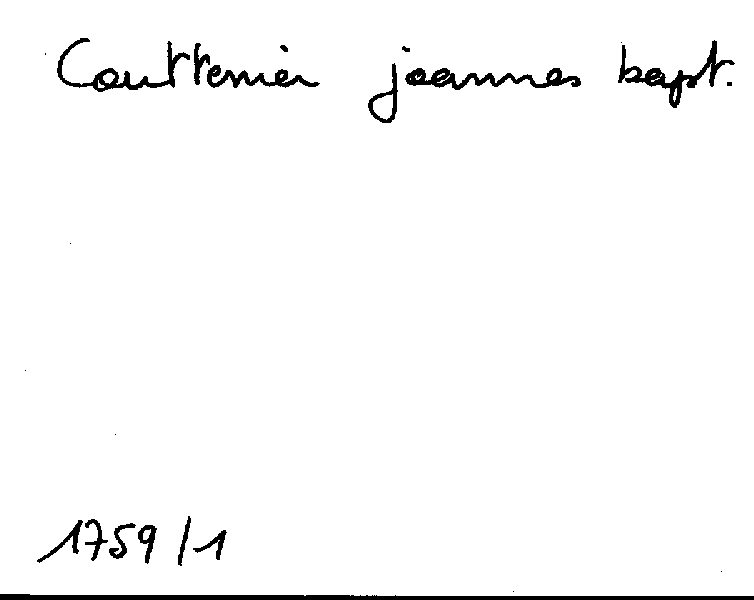 Couttenier joannes bapt.
1759/1